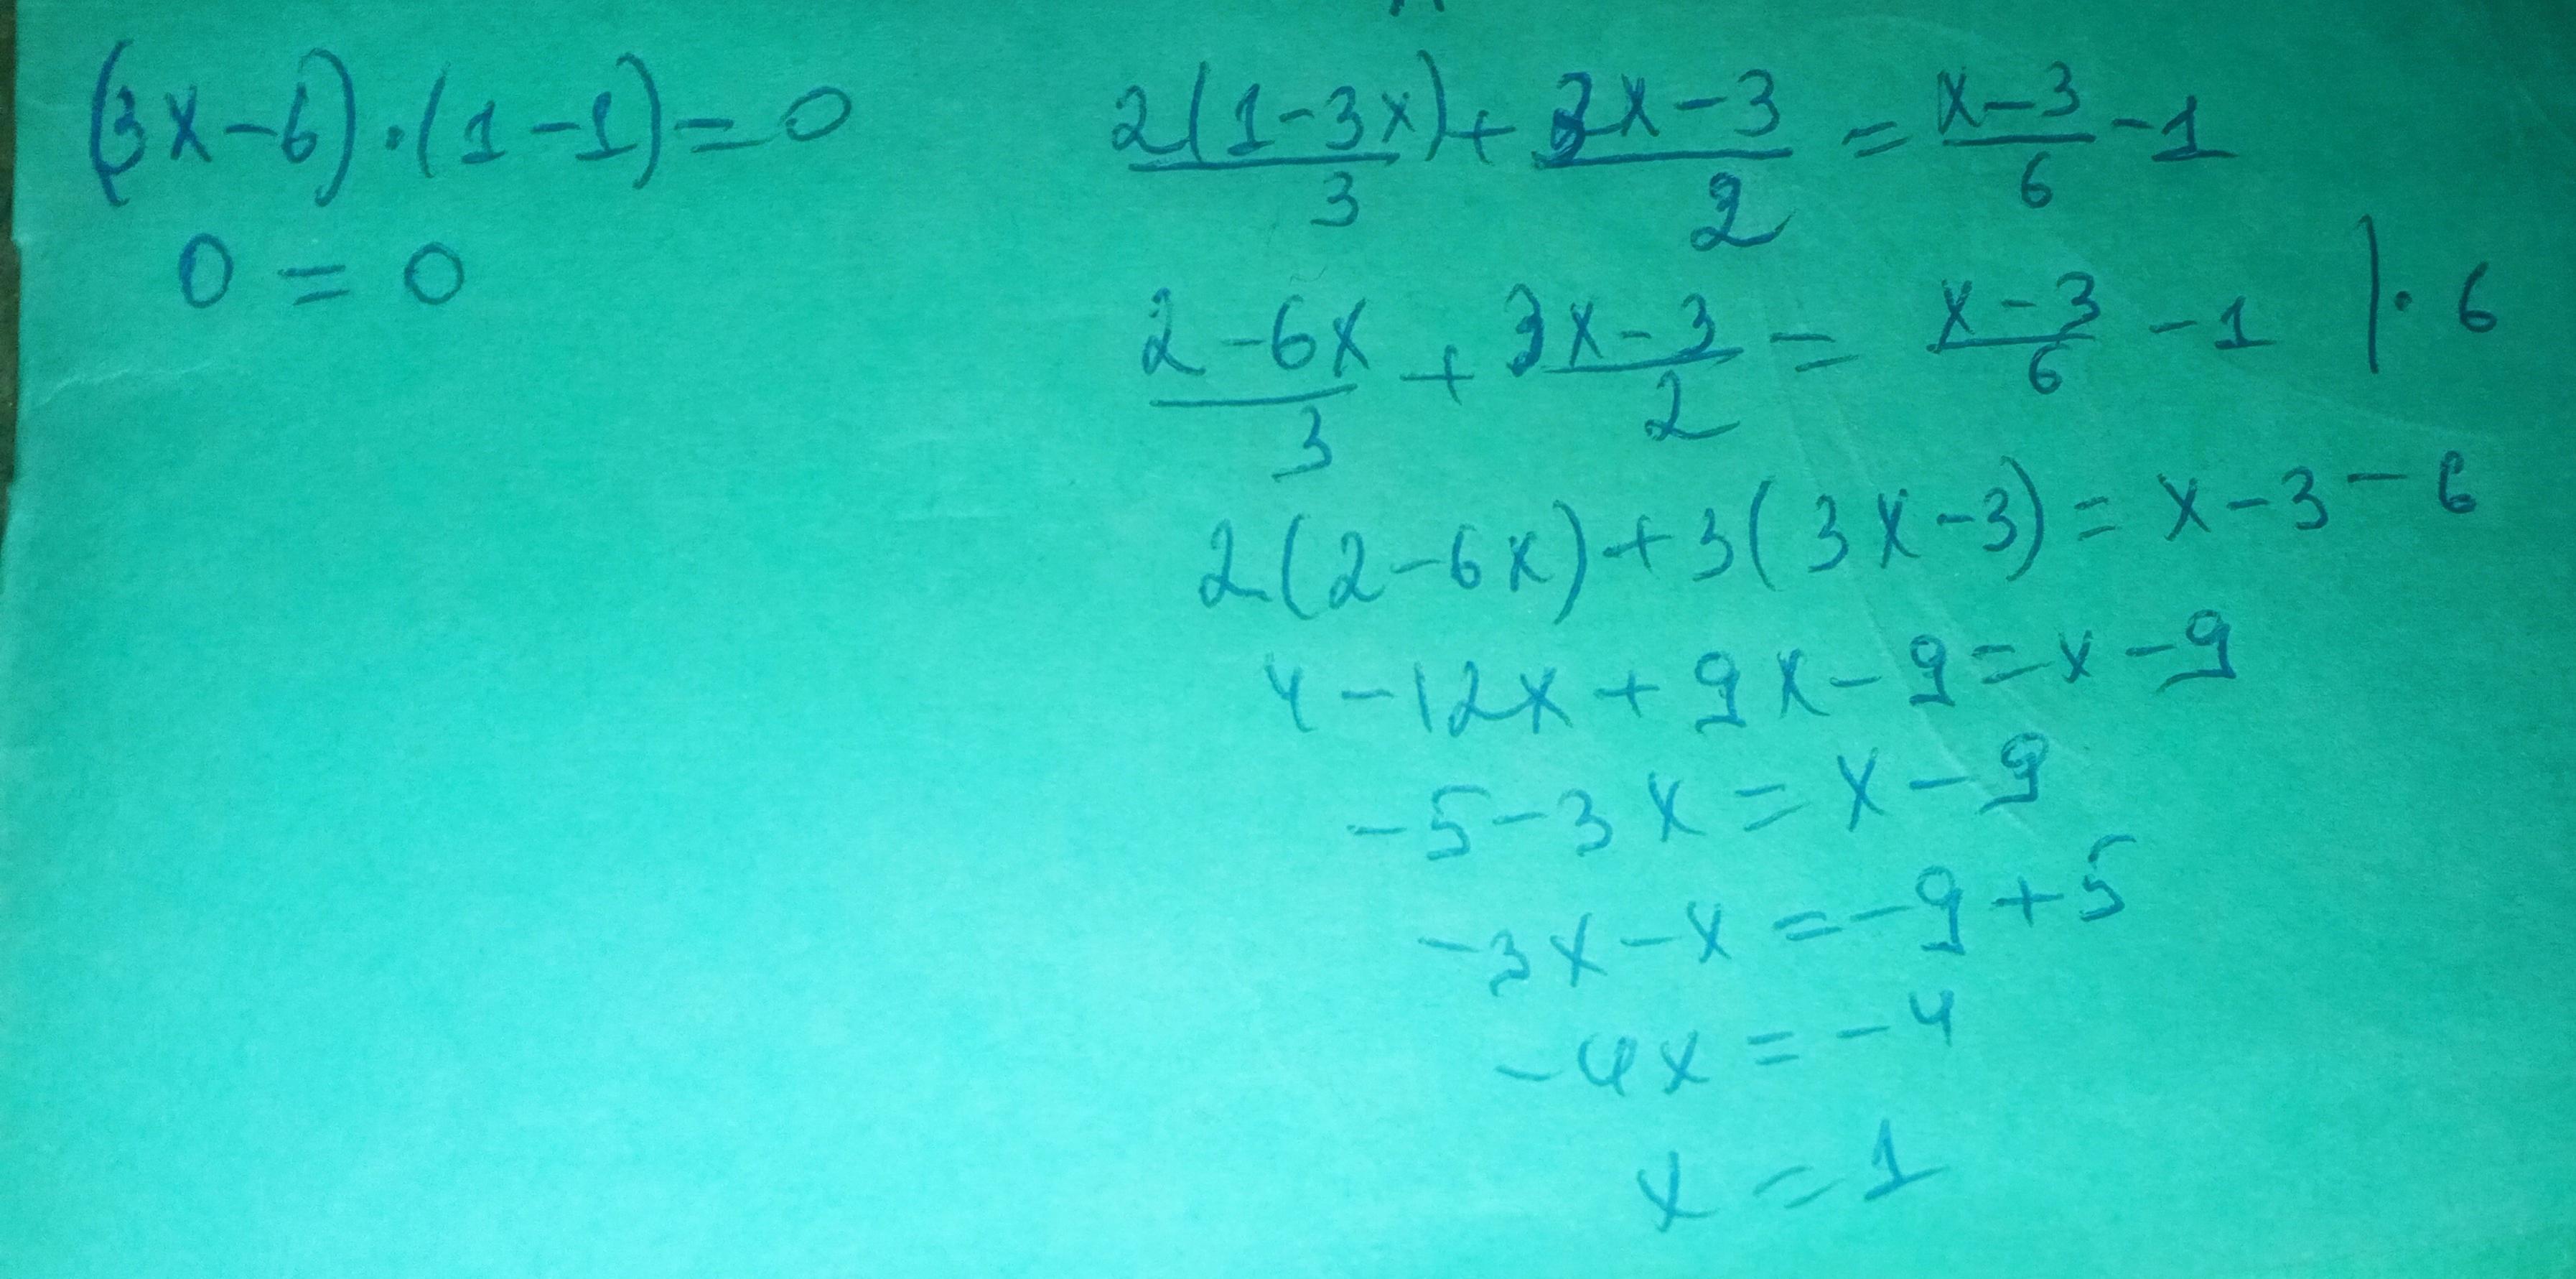 (3x-6)·(1-1)=0
0 = 0
2(1-3x)/3 + 3x-3/2 = x-3/6 -1
2-6x/3 + 3x-3/2 = x-3/6 -1 |· 6
2(2-6x)+3(3x-3)= x-3-6
4-12x+9x-9=x-9
-5-3x=x-9
-3x-x=-9+5
-4x=-4
x=1